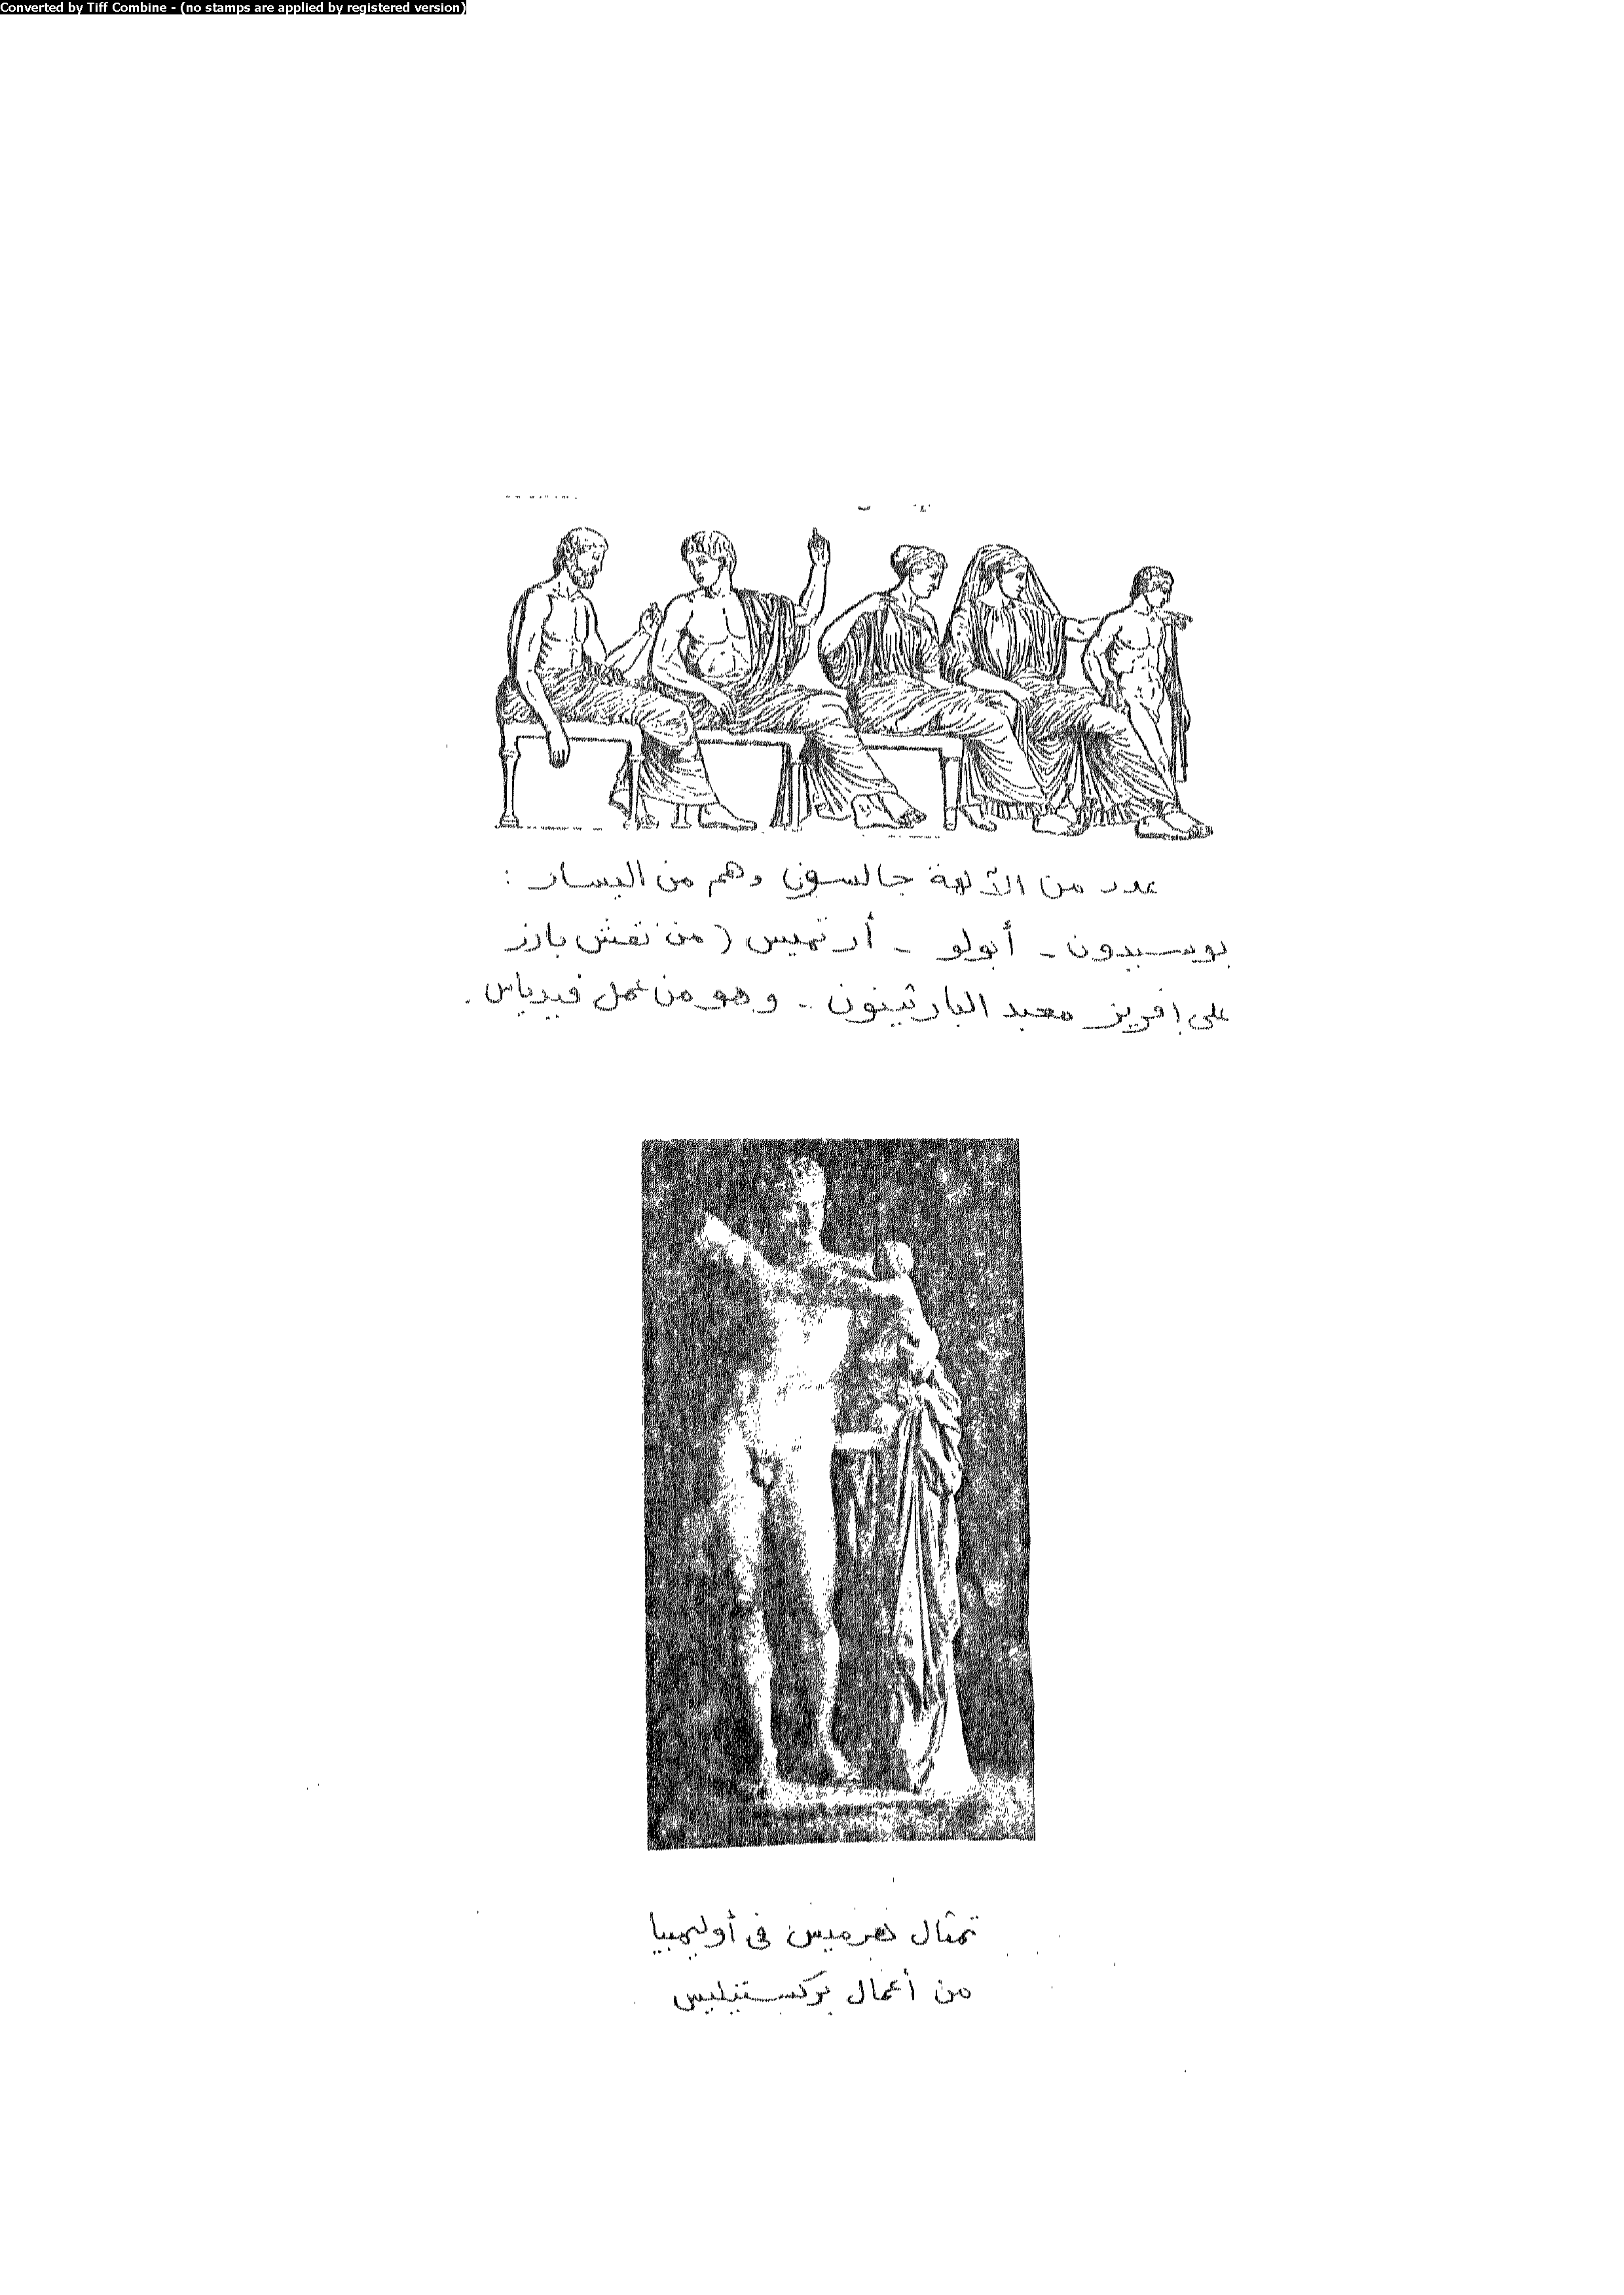 Converted by Tiff Combine - (no stamps are applied by registered version)
عدد من الآلهة جالسون وهم من اليسار :
بوسيدون - أبولو - أرتميس ( من نقش بارز
على إفريز معبد البارثينون - وهو من عمل فيدياس .
تمثال هرميس فى أوليمبيا
من أعمال بركستيليس